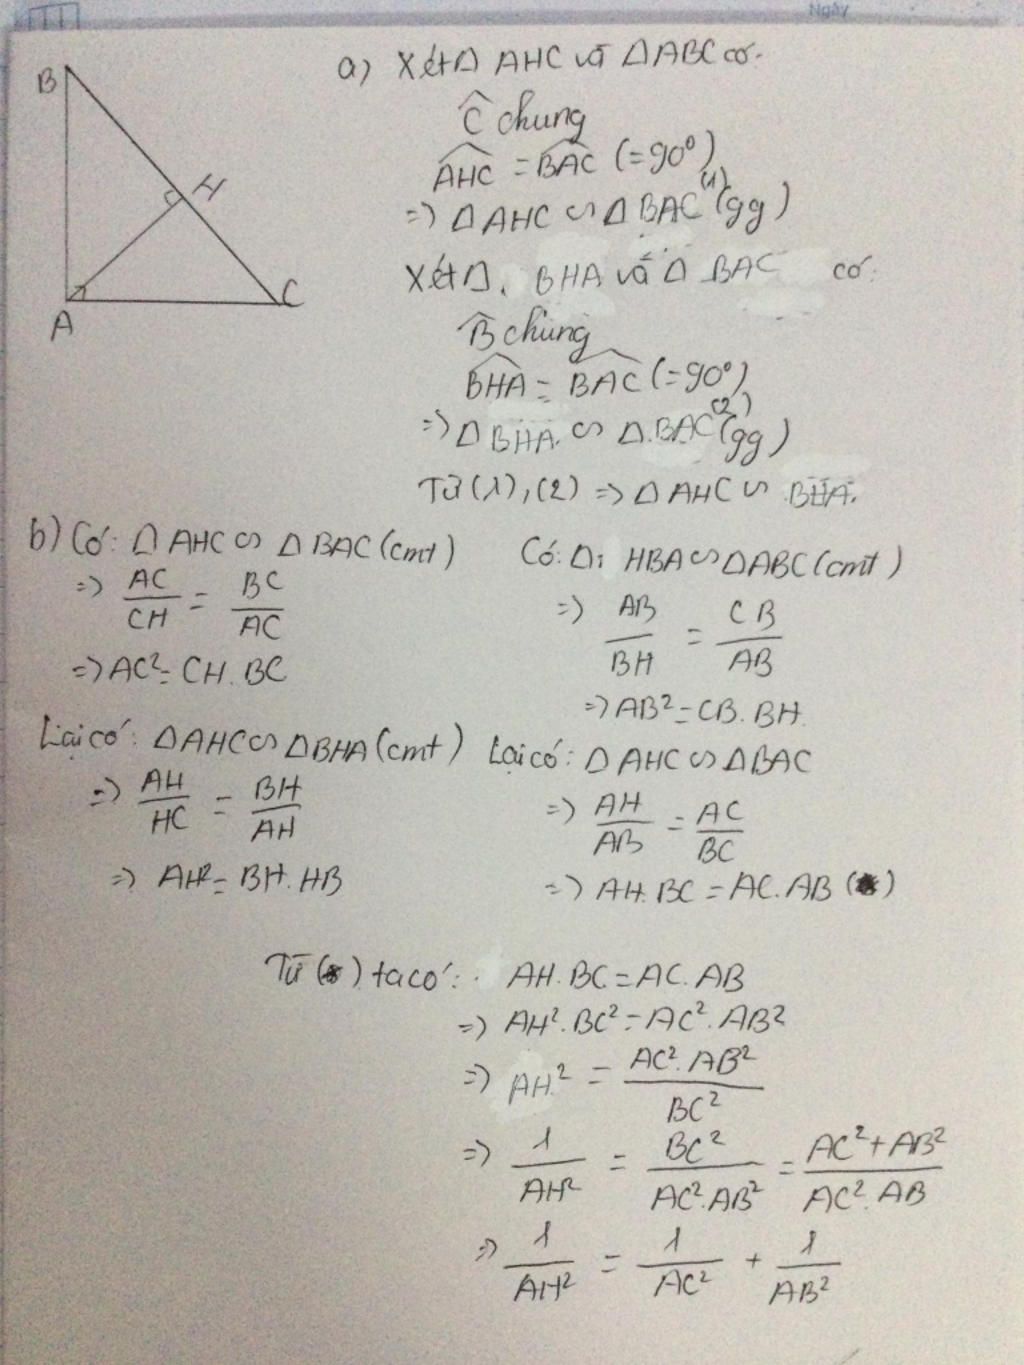 Ngày
B
H
A
C
a) Xét Δ AHC và Δ ABC có:
Ĉ chung
AHC = BAC (=90°)
=> Δ AHC ∽ Δ BAC (gg) (1)
Xét Δ BHA và Δ BAC có:
B̂ chung
BHA = BAC (=90°)
=> Δ BHA ∽ Δ BAC (gg) (2)
Từ (1), (2) => Δ AHC ∽ BHA.
b) Có: Δ AHC ∽ Δ BAC (cmt)
=> AC/CH = BC/AC
=> AC² = CH. BC
Có: Δ HBA ∽ Δ ABC (cmt)
=> AB/BH = CB/AB
=> AB² = CB. BH
Lại có: Δ AHC ∽ Δ BHA (cmt)
=> AH/HC = BH/AH
=> AH² = BH. HB
Lại có: Δ AHC ∽ Δ BAC
=> AH/AB = AC/BC
=> AH. BC = AC. AB (*)
Từ (*) ta có: AH. BC = AC. AB
=> AH². BC² = AC². AB²
=> AH² = AC². AB²/BC²
=> 1/AH² = BC²/AC².AB² = AC² + AB²/AC². AB
=> 1/AH² = 1/AC² + 1/AB²